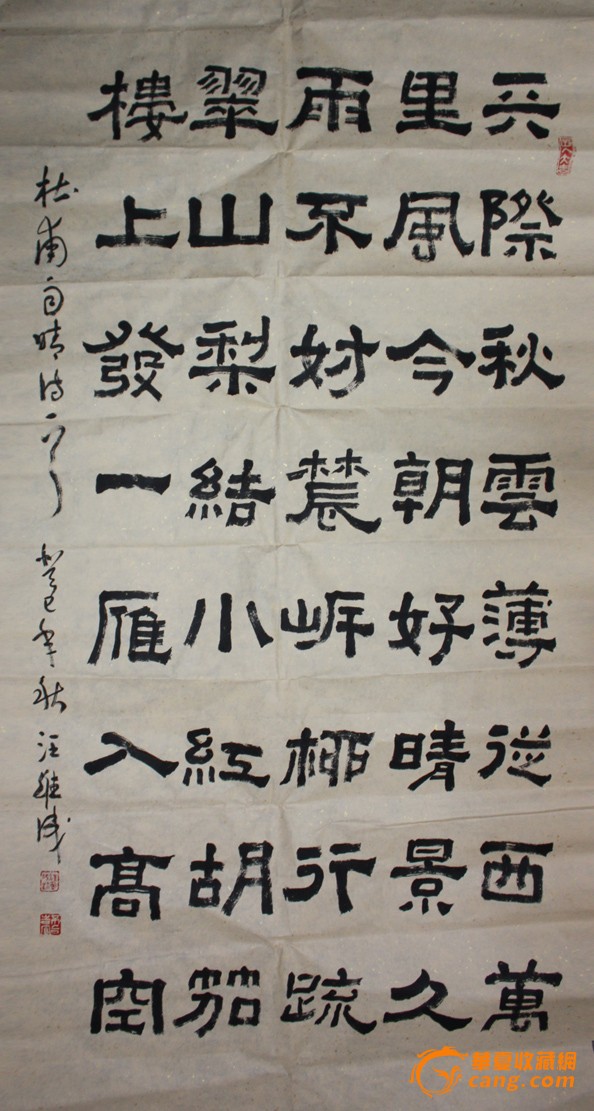 天際秋雲薄從西萬
里風今朝好晴景久
雨不妨農岸柳行疏
翠山梨結小紅胡笳
樓上發一雁入高空
杜甫雨晴詩一首 癸巳年秋 汪維成
華夏收藏網
cang.com